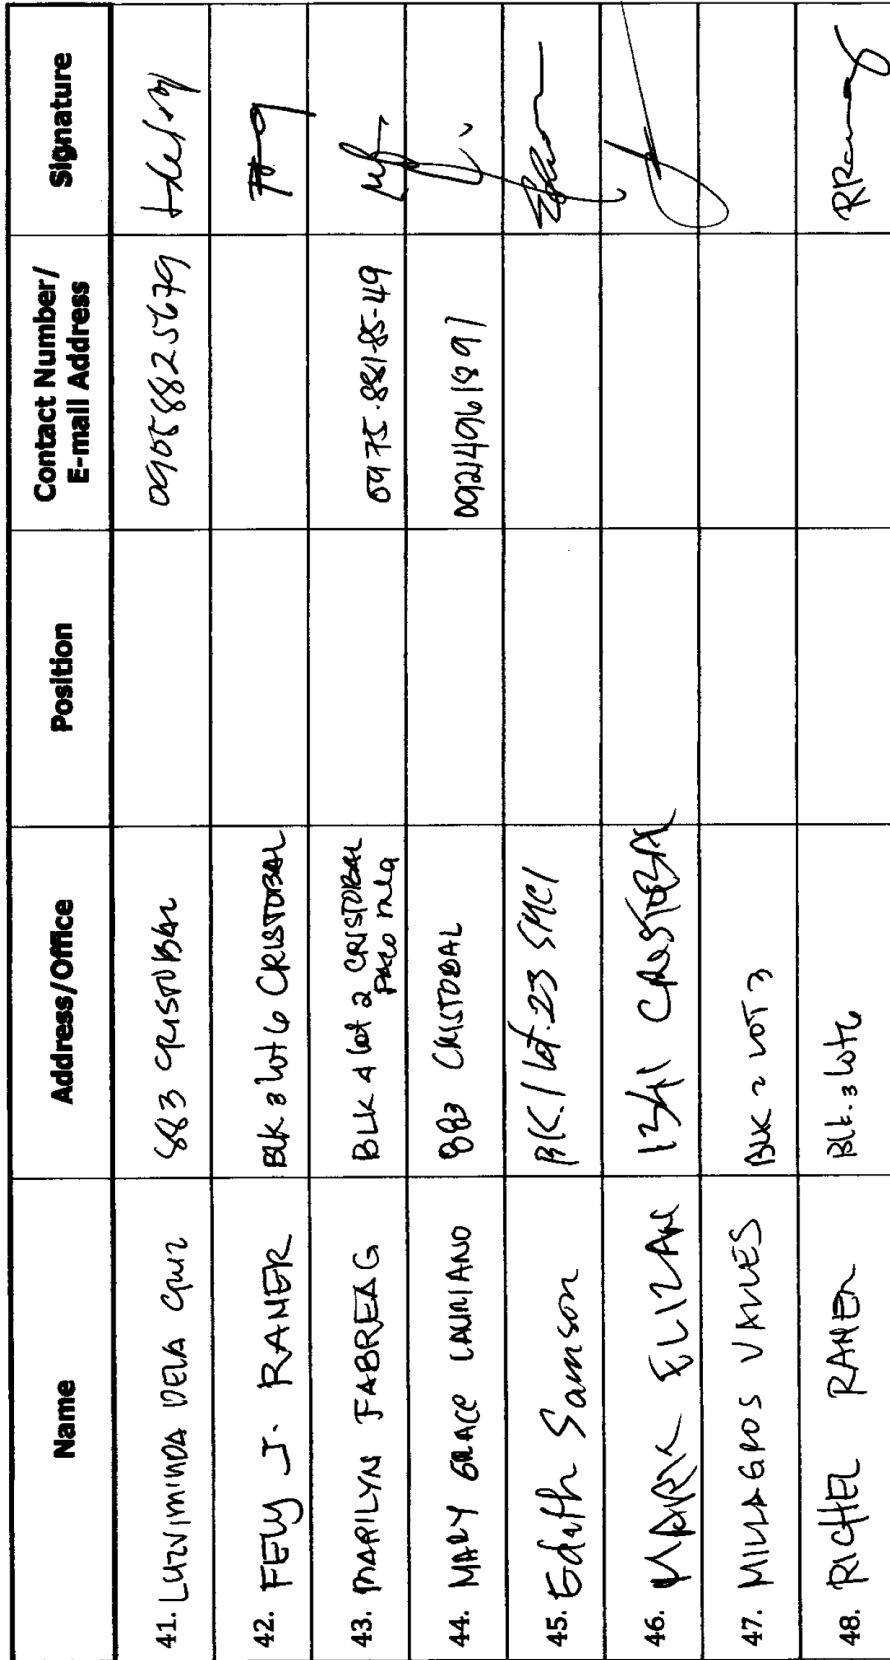 Name Address/Office Position Contact Number/ E-mail Address Signature
41. LUZVIMINDA DELA CRUZ 883 CRISTOBAL 09058825679
42. FELY J. RAMER BLK 3 lot 6 CRISTOBAL
43. MARILYN FABREAG BLK 4 lot 2 CRISTOBAL 0975-881-85-49
PACO mla
44. MARY GRACE LAURIANO 883 CRISTOBAL 09214961891
45. Edith Samson BK.1 lot.23 SMCI
46. MARK ELIZAN 1341 CRISTOBAL
47. MILLAGROS VALLES BLK 2 LOT 3
48. RICHEL RAMER Blk.3 lot6